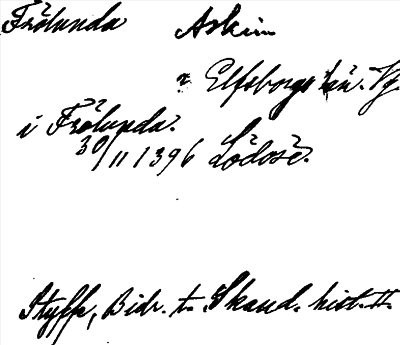 Frölunda Askim
Elfsborgs län. Vg.
i Frölunda.
30/11 1396 Lödöse.
Styffe, Bidr. t. Skand. hist. II.